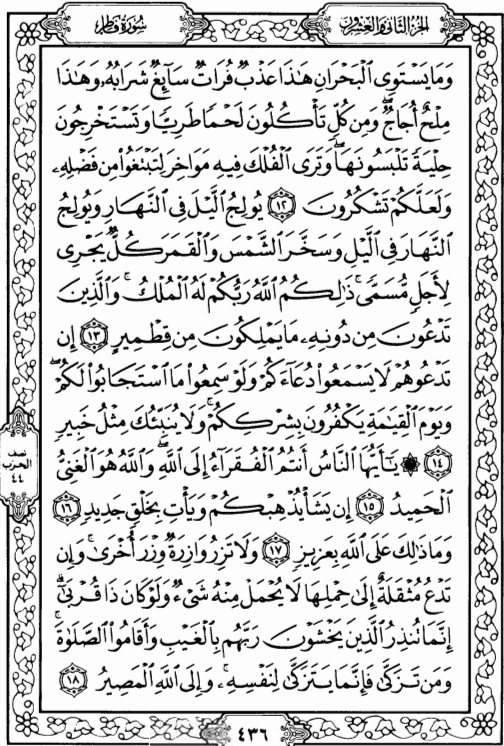 سُورَةُ فَاطِرٍ
الجُزْءُ الثَّانِي وَالعِشْرُونَ
وَمَا يَسْتَوِي الْبَحْرَانِ هَٰذَا عَذْبٌ فُرَاتٌ سَآئِغٌ شَرَابُهُۥ وَهَٰذَا
مِلْحٌ أُجَاجٌ ۖ وَمِن كُلٍّ تَأْكُلُونَ لَحْمًا طَرِيًّا وَتَسْتَخْرِجُونَ
حِلْيَةً تَلْبَسُونَهَا ۖ وَتَرَى الْفُلْكَ فِيهِ مَوَاخِرَ لِتَبْتَغُوا۟ مِن فَضْلِهِۦ
وَلَعَلَّكُمْ تَشْكُرُونَ ١٢ يُولِجُ الَّيْلَ فِي النَّهَارِ وَيُولِجُ
النَّهَارَ فِي الَّيْلِ وَسَخَّرَ الشَّمْسَ وَالْقَمَرَ كُلٌّ يَجْرِي
لِأَجَلٍ مُّسَمًّى ۚ ذَٰلِكُمُ اللَّهُ رَبُّكُمْ لَهُ الْمُلْكُ ۚ وَالَّذِينَ
تَدْعُونَ مِن دُونِهِۦ مَا يَمْلِكُونَ مِن قِطْمِيرٍ ١٣ إِن
تَدْعُوهُمْ لَا يَسْمَعُوا۟ دُعَآءَكُمْ وَلَوْ سَمِعُوا۟ مَا اسْتَجَابُوا۟ لَكُمْ ۖ
وَيَوْمَ الْقِيَٰمَةِ يَكْفُرُونَ بِشِرْكِكُمْ ۚ وَلَا يُنَبِّئُكَ مِثْلُ خَبِيرٍ
١٤ ۞ يَٰٓأَيُّهَا النَّاسُ أَنتُمُ الْفُقَرَآءُ إِلَى اللَّهِ ۖ وَاللَّهُ هُوَ الْغَنِيُّ
الْحَمِيدُ ١٥ إِن يَشَأْ يُذْهِبْكُمْ وَيَأْتِ بِخَلْقٍ جَدِيدٍ ١٦
وَمَا ذَٰلِكَ عَلَى اللَّهِ بِعَزِيزٍ ١٧ وَلَا تَزِرُ وَازِرَةٌ وِزْرَ أُخْرَىٰ ۚ وَإِن
تَدْعُ مُثْقَلَةٌ إِلَىٰ حِمْلِهَا لَا يُحْمَلْ مِنْهُ شَيْءٌ وَلَوْ كَانَ ذَا قُرْبَىٰٓ ۗ
إِنَّمَا تُنذِرُ الَّذِينَ يَخْشَوْنَ رَبَّهُم بِالْغَيْبِ وَأَقَامُوا۟ الصَّلَوٰةَ ۚ
وَمَن تَزَكَّىٰ فَإِنَّمَا يَتَزَكَّىٰ لِنَفْسِهِۦ ۚ وَإِلَى اللَّهِ الْمَصِيرُ ١٨
نصف
الحزب
٤٤
٤٣٦